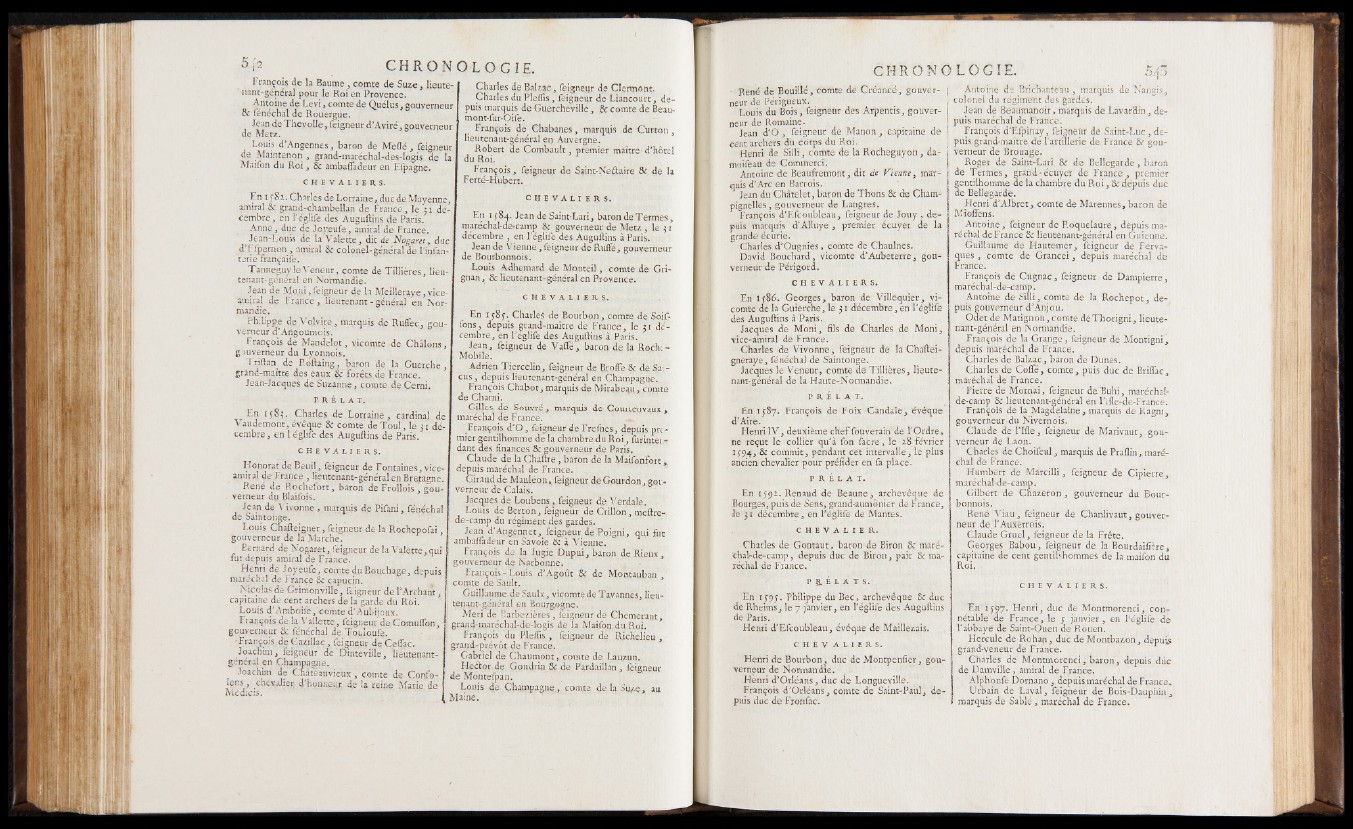 542 CHRONOLOGIE.
François de la Baume, comte de Suze, lieute-
nant-général pour le Roi en Provence.
Antoine de Levi, comte de Quélus, gouverneur
& sénéchal de Rouergue.
Jean de Thevolle, seigneur d'Aviré, gouverneur
de Metz.
Louis d'Angennes, baron de Meslé, seigneur
de Maintenon, grand-maréchal-des-logis de la
Maison du Roi, & ambassadeur en Espagne.
CHEVALIERS.
En 1582. Charles de Lorraine, duc de Mayenne,
amiral & grand-chambellan de France, le 31 dé-
cembre, en l'église des Augustins de Paris.
Anne, duc de Joyeuse, amiral de France.
Jean-Louis de la Valette, dit de Nogaret, duc
d'Espernon, amiral & colonel-général de l'infan-
terie française.
Tanneguy le Veneur, comte de Tillieres, lieu-
tenant-général en Normandie.
Jean de Moui, seigneur de la Meilleraye, vice-
amiral de France, lieutenant-général en Nor-
mandie.
Philippe de Volvire, marquis de Ruffec, gou-
verneur d'Angoumois.
François de Mandelot, vicomte de Châlons,
gouverneur du Lyonnois.
Tristan de Rostaing, baron de la Guerche,
grand-maître des eaux & forêts de France.
Jean-Jacques de Suzanne, comte de Cerni.
PRÉLAT.
En 1583. Charles de Lorraine, cardinal de
Vaudemont, évêque & comte de Toul, le 31 dé-
cembre, en l'église des Augustins de Paris.
CHEVALIERS.
Honorat de Beuil, seigneur de Fontaines, vice-
amiral de France, lieutenant-général en Bretagne.
René de Rochefort, baron de Frollois, gou-
verneur du Blaisois.
Jean de Vivonne, marquis de Pisani, sénéchal
de Saintonge.
Louis Chasteigner, seigneur de la Rocheposai,
gouverneur de la Marche.
Bernard de Nogaret, seigneur de la Valette, qui
fut depuis amiral de France.
Henri de Joyeuse, comte du Bouchage, depuis
maréchal de France & capucin.
Nicolas de Grimonville, seigneur de l'Archant,
capitaine de cent archers de la garde du Roi.
Louis d'Amboise, comte d'Aubijoux.
François de la Vallette, seigneur de Cornusson,
gouverneur & sénéchal de Toulouse.
François de Cazillac, seigneur de Cessac.
Joachim, seigneur de Dinteville, lieutenant-
général en Champagne.
Joachim de Châteauvieux, comte de Confo-
lens, chevalier d'honneur de la reine Marie de
Médicis.
Charles de Balzac, seigneur de Clermont.
Charles du Plessis, seigneur de Liancourt, de-
puis marquis de Guercheville, & comte de Beau-
mont-sur-Oise.
François de Chabanes, marquis de Curton,
lieutenant-général en Auvergne.
Robert de Combault, premier maître-d'hôtel
du Roi.
François, seigneur de Saint-Nectaire & de la
Ferté-Hubert.
CHEVALIERS.
En 1584. Jean de Saint-Lari, baron de Termes,
maréchal-de-camp & gouverneur de Metz, le 31
décembre, en l'église des Augustins à Paris.
Jean de Vienne, seigneur de Ruffé, gouverneur
de Bourbonnois.
Louis Adhemard de Monteil, comte de Gri-
gnan, & lieutenant-général en Provence.
CHEVALIERS.
En 1585. Charles de Bourbon, comte de Sois-
sons, depuis grand-maître de France, le 31 dé-
cembre, en l'église des Augustins à Paris.
Jean, seigneur de Vassé, baron de la Roche-
Mobile.
Adrien Tiercelin, seigneur de Brosse & de Sar-
cus, depuis lieutenant-général en Champagne.
François Chabot, marquis de Mirabeau, comte
de Charni.
Gilles de Souvré, marquis de Courtenvaux,
maréchal de France.
François d'O, seigneur de Fresnes, depuis pre-
mier gentilhomme de la chambre du Roi, surinten-
dant des finances & gouverneur de Paris.
Claude de la Chastre, baron de la Maisonfort,
depuis maréchal de France.
Giraud de Mauléon, seigneur de Gourdon, gou-
verneur de Calais.
Jacques de Loubens, seigneur de Verdale.
Louis de Berton, seigneur de Crillon, mestre-
de-camp du régiment des gardes.
Jean d'Angennet, seigneur de Poigni, qui fut
ambassadeur en Savoie & à Vienne.
François de la Jugie Dupui, baron de Rieux,
gouverneur de Narbonne.
François-Louis d'Agoût & de Montauban,
comte de Sault.
Guillaume de Saulx, vicomte de Tavannes, lieu-
tenant-général en Bourgogne.
Meri de Barbezières, seigneur de Chemeraut,
grand-maréchal-de-logis de la Maison du Roi.
François du Plessis, seigneur de Richelieu,
grand-prévôt de France.
Gabriel de Chaumont, comte de Lauzun.
Hector de Gondrin & de Pardaillan, seigneur
de Montespan.
Louis de Champagne, comte de la Suze, au
Maine.
CHRONOLOGIE. 543
René de Bouillé, comte de Créancé, gouver-
neur de Périgueux.
Louis du Bois, seigneur des Arpentis, gouver-
neur de Romaine.
Jean d'O, seigneur de Manon, capitaine de
cent archers du corps du Roi.
Henri de Silli, comte de la Rocheguyon, da-
moiseau de Commerci.
Antoine de Beaufremont, dit de Vienne, mar-
quis d'Arc en Barrois.
Jean du Châtelet, baron de Thons & de Cham-
pignelles, gouverneur de Langres.
François d'Escoubleau, seigneur de Jouy, de-
puis marquis d'Alluye, premier écuyer de la
grande écurie.
Charles d'Ougnies, comte de Chaulnes.
David Bouchard, vicomte d'Aubeterre, gou-
verneur de Périgord.
CHEVALIERS.
En 1586. Georges, baron de Villequier, vi-
comte de la Guierche, le 31 décembre, en l'église
des Augustins à Paris.
Jacques de Moni, fils de Charles de Moni,
vice-amiral de France.
Charles de Vivonne, seigneur de la Chastei-
gneraye, sénéchal de Saintonge.
Jacques le Veneur, comte de Tillières, lieute-
nant-général de la Haute-Normandie.
PRÉLAT.
En 1587. François de Foix Candale, évêque
d'Aire.
Henri IV, deuxième chef souverain de l'Ordre,
ne reçut le collier qu'à son sacre, le 28 février
1594, & commit, pendant cet intervalle, le plus
ancien chevalier pour présider en sa place.
PRÉLAT.
En 1592. Renaud de Beaune, archevêque de
Bourges, puis de Sens, grand-aumônier de France,
le 31 décembre, en l'église de Mantes.
CHEVALIER.
Charles de Gontaut, baron de Biron & maré-
chal-de-camp, depuis duc de Biron, pair & ma-
réchal de France.
PRÉLATS.
En 1595. Philippe du Bec, archevêque & duc
de Rheims, le 7 janvier, en l'église des Augustins
de Paris.
Henri d'Escoubleau, évêque de Maillezais.
CHEVALIERS.
Henri de Bourbon, duc de Montpensier, gou-
verneur de Normandie.
Henri d'Orléans, duc de Longueville.
François d'Orléans, comte de Saint-Paul, de-
puis duc de Fronsac.
Antoine de Brichanteau, marquis de Nangis,
colonel du régiment des gardes.
Jean de Beaumanoir, marquis de Lavardin, de-
puis maréchal de France.
François d'Espinay, seigneur de Saint-Luc, de-
puis grand-maître de l'artillerie de France & gou-
verneur de Brouage.
Roger de Saint-Lari & de Bellegarde, baron
de Termes, grand-écuyer de France, premier
gentilhomme de la chambre du Roi, & depuis duc
de Bellegarde.
Henri d'Albret, comte de Marennes, baron de
Miossens.
Antoine, seigneur de Roquelaure, depuis ma-
réchal de France & lieutenant-général en Guienne.
Guillaume de Hautemer, seigneur de Ferva-
ques, comte de Grancei, depuis maréchal de
France.
François de Cugnac, seigneur de Dampierre,
maréchal-de-camp.
Antoine de Silli, comte de la Rochepot, de-
puis gouverneur d'Anjou.
Odet de Matignon, comte de Thorigni, lieute-
nant-général en Normandie.
François de la Grange, seigneur de Montigni,
depuis maréchal de France.
Charles de Balzac, baron de Dunes.
Charles de Cossé, comte, puis duc de Brissac,
maréchal de France.
Pierre de Mornai, seigneur de Buhi, maréchal-
de-camp & lieutenant-général en l'Isle-de-France.
François de la Magdelaine, marquis de Ragni,
gouverneur du Nivernois.
Claude de l'Isle, seigneur de Marivaut, gou-
verneur de Laon.
Charles de Choiseul, marquis de Praslin, maré-
chal de France.
Humbert de Marcilli, seigneur de Cipierre,
maréchal-de-camp.
Gilbert de Chazeron, gouverneur du Bour-
bonnois.
René Viau, seigneur de Chanlivaut, gouver-
neur de l'Auxerrois.
Claude Gruel, seigneur de la Frête.
Georges Babou, seigneur de la Bourdaisière,
capitaine de cent gentilshommes de la maison du
Roi.
CHEVALIERS.
En 1597. Henri, duc de Montmorenci, con-
nétable de France, le 5 janvier, en l'église de
l'abbaye de Saint-Ouen de Rouen.
Hercule de Rohan, duc de Montbazon, depuis
grand-veneur de France.
Charles de Montmorenci, baron, depuis duc
de Damville, amiral de France.
Alphonse Dornano, depuis maréchal de France.
Urbain de Laval, seigneur de Bois-Dauphin,
marquis de Sablé, maréchal de France.